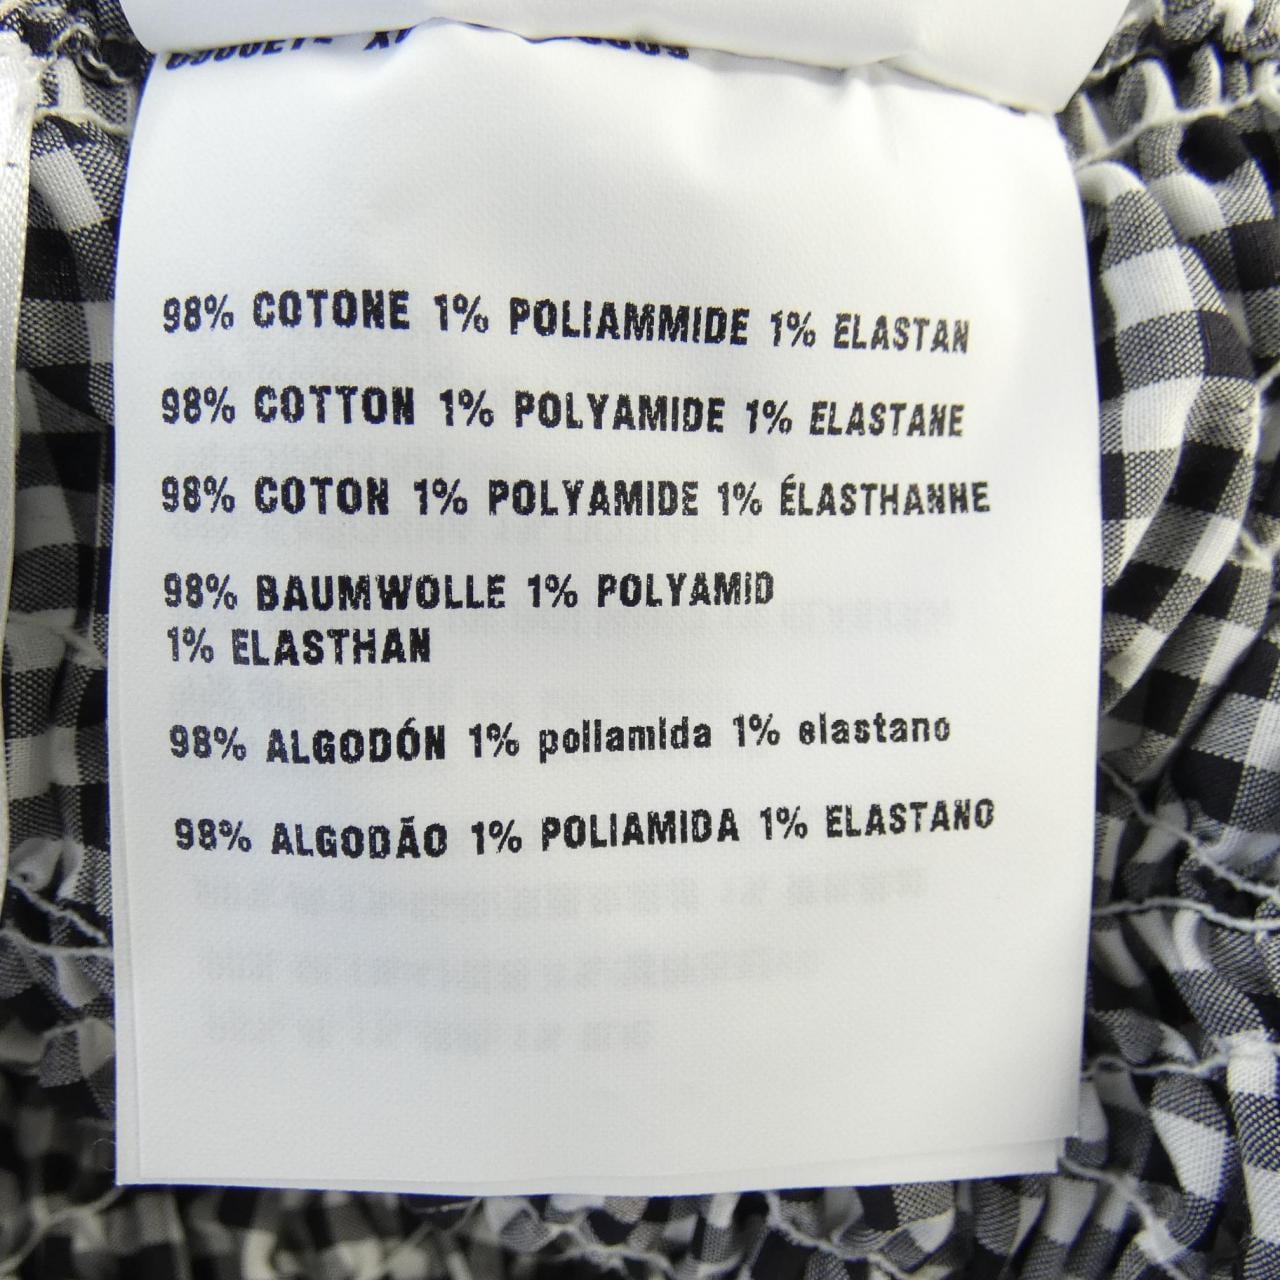 98% COTONE 1% POLIAMMIDE 1% ELASTAN
98% COTTON 1% POLYAMIDE 1% ELASTANE
98% COTON 1% POLYAMIDE 1% ÉLASTHANNE
98% BAUMWOLLE 1% POLYAMID
1% ELASTHAN
98% ALGODÓN 1% poliamida 1% elastano
98% ALGODÃO 1% POLIAMIDA 1% ELASTANO